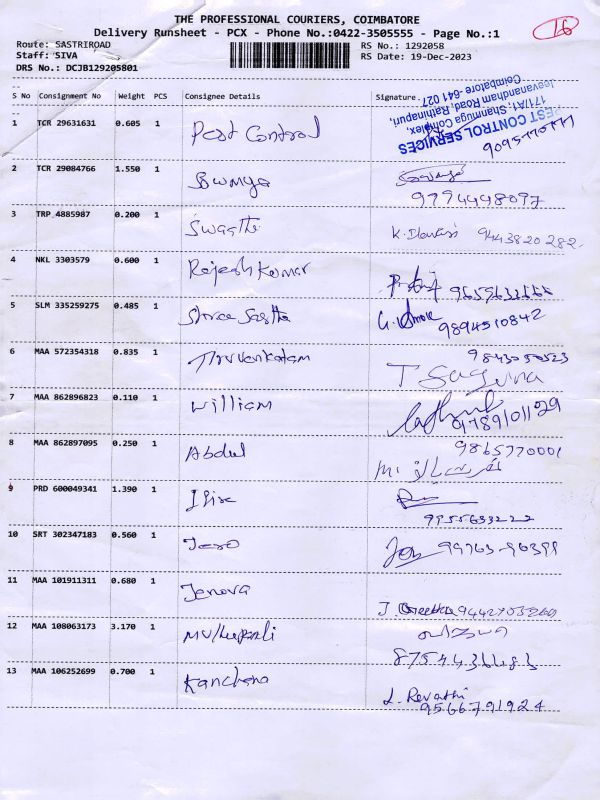 THE PROFESSIONAL COURIERS, COIMBATORE
16
Delivery Runsheet - PCX - Phone No.:0422-3505555 - Page No.:1
Route: SASTRIROAD
RS No.: 1292058
Staff: SIVA
RS Date: 19-Dec-2023
DRS No.: DCJB129205801
S No Consignment No Weight PCS Consignee Details Signature
PEST CONTROL SERVICES
171/A1, Shanmuga Complex,
Jeevanandham Road, Rathinapuri,
Coimbatore-641 027
1 TCR 29631631 0.605 1 Pest Control
2 TCR 29084766 1.550 1 Sowmya
9794448097
3 TRP 4885987 0.200 1 Swasthi K. 9443820282
4 NKL 3303579 0.600 1 Rajesh Kumar
5 SLM 335259275 0.485 1 Shree Sastha 9894510842
6 MAA 572354318 0.835 1 Thiruvenkatam 9843050523
T Saguna
7 MAA 862896823 0.110 1 William
8 MAA 862897095 0.250 1 Abdul 9865770001
9 PRD 600049341 1.390 1
9955633222
10 SRT 302347183 0.560 1 Jero
11 MAA 101911311 0.680 1 Jenova J. Geetha
12 MAA 108063173 3.170 1
13 MAA 106252699 0.700 1 Kanchana
L. Revathi
9566791924